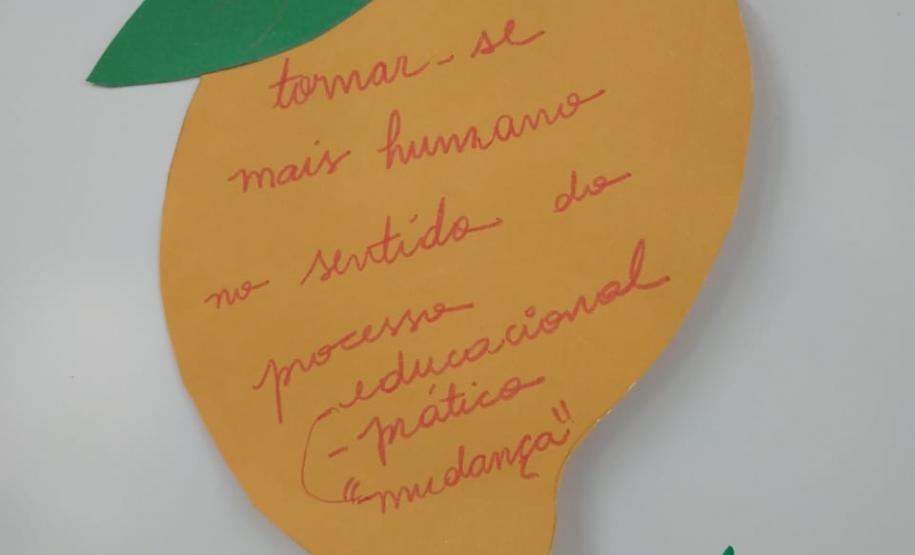 tornar-se
mais humano
no sentido do
processo
educacional
- prática
"mudança"